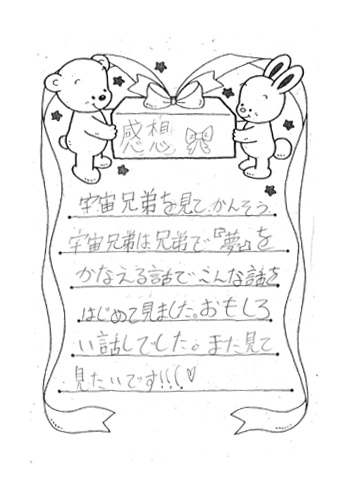 感想
宇宙兄弟を見て、かんそう
宇宙兄弟は兄弟で『夢』を
かなえる話で、こんな話を
はじめて見ました。おもしろ
い話しでした。また見て
見たいです!!(.♡